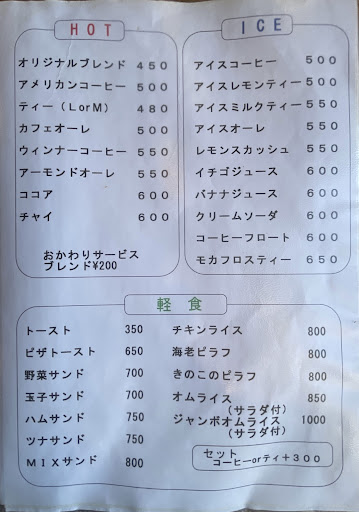 HOT
オリジナルブレンド 450
アメリカンコーヒー 500
ティー（LorM） 480
カフェオーレ 500
ウィンナーコーヒー 550
アーモンドオーレ 550
ココア 600
チャイ 600
おかわりサービス
ブレンド¥200
ICE
アイスコーヒー 500
アイスレモンティー 500
アイスミルクティー 550
アイスオーレ 550
レモンスカッシュ 550
イチゴジュース 600
バナナジュース 600
クリームソーダ 600
コーヒーフロート 600
モカフロスティー 650
軽食
トースト 350
ピザトースト 650
野菜サンド 700
玉子サンド 700
ハムサンド 750
ツナサンド 750
MIXサンド 800
チキンライス 800
海老ピラフ 800
きのこのピラフ 800
オムライス 850
（サラダ付）
ジャンボオムライス 1000
（サラダ付）
セット
コーヒーorティ＋300